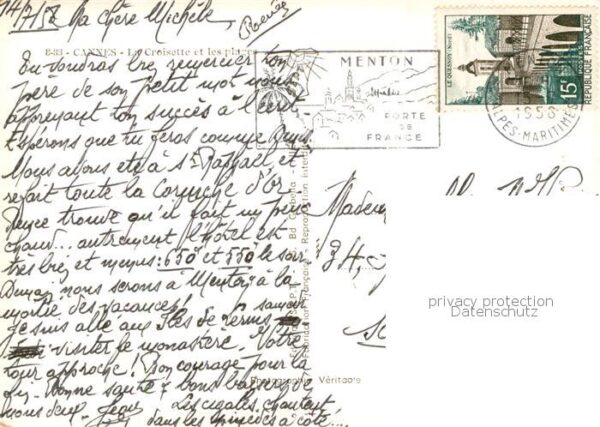 14/7/58 Ma Chère Michèle,
8-83 - CANNES - La Croisette et les plages
Tu voudras bien remercier ton
père de son petit mot nous
apprenant ton succès à l'écrit
Espérons que tu feras comme
Nous avons été à St Raphaël et
refait toute la Corniche d'Or
trouve qu'il fait un peu
chaud... autrement l'hôtel est
très bien et menus: 650 et 550 le soir
Demain nous serons à Menton à la
moitié des vacances!
je suis allé aux Iles de Lerins
visiter le monastère. Votre
tour approche! Bon courage pour la
fin. Bonne santé & bons baisers de
nous deux - Jean Les cigales chantent
dans les à côté...
MENTON
PORTE
DE
FRANCE
LE QUESNOY (NORD)
15F
POSTES
REPUBLIQUE FRANÇAISE
1958
ALPES-MARITIMES
34,
Fabrication Française - Reproduction
Photographie Véritable
privacy protection
Datenschutz